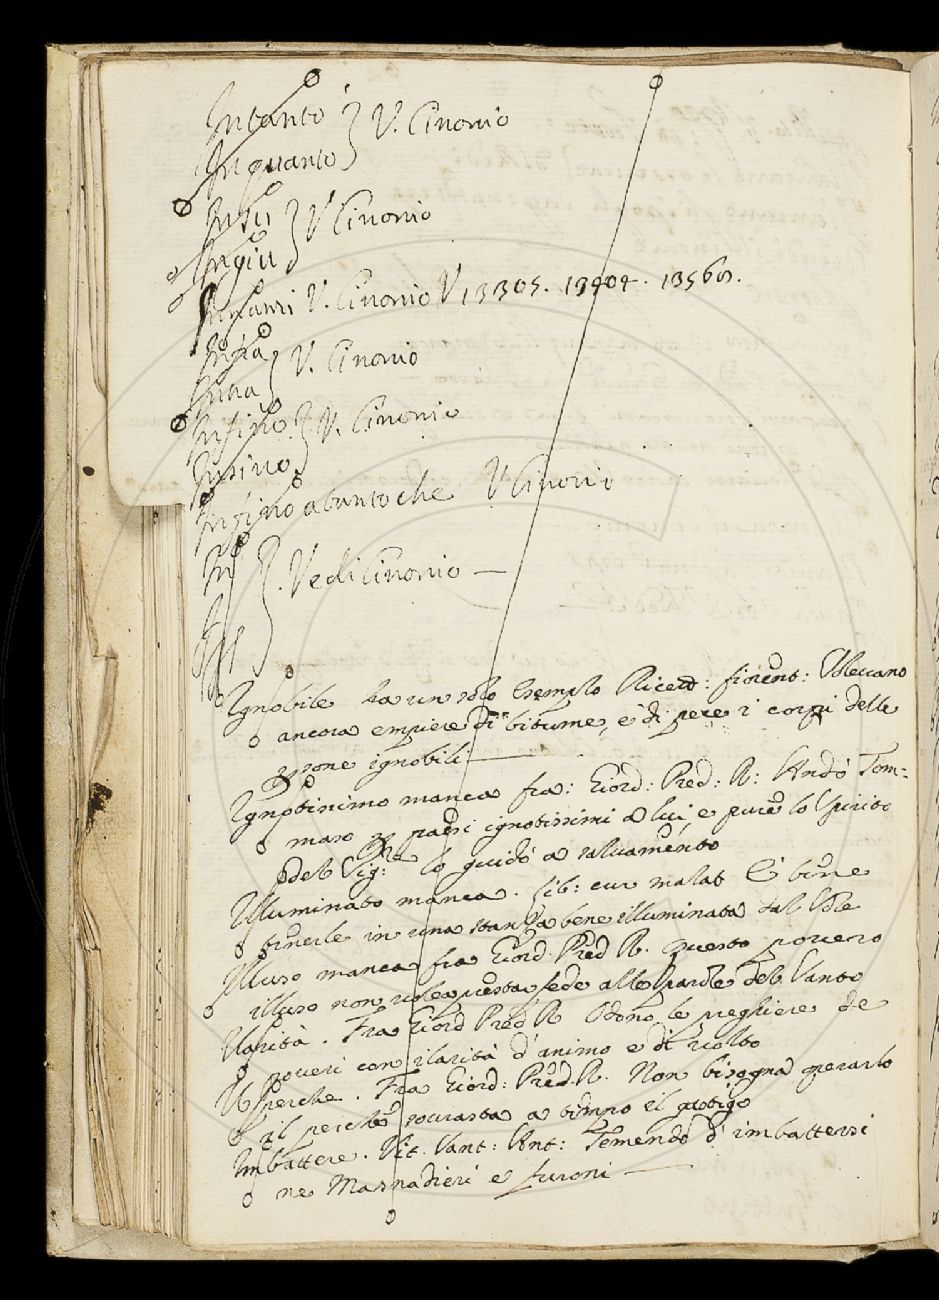 Intanto } V. Cinonio
Inquanto
Insu } V Cinonio
Ingiu
V. Cinonio V 13305. 13404. 13560.
V. Cinonio
Infino } V. Cinonio
Insino
Infino a tanto che V Cinonio
In } Vedi Cinonio —
Ignobile ha un solo Esempio Ricett: fiorent: Usevano
ancora empiere di bitume, e di pece i corpi delle
ꝑsone ignobili —
Ignotissimo manca fra: Giord: Pred: R: Andò Tom-
maso ꝑ paesi ignotissimi a lui, e pure lo Spirito
del Sig:re lo guidò a salvamento
Illuminato manca. lib: cur malat È bene
tenerle in una stanza bene illuminata dal Sole
Illuso manca fra Giord. Pred R. Questo povero
illuso non volea prestar fede alle parole del Santo
Ilarità. Fra Giord Pred R Odono le preghiere de
poveri con ilarità d'animo e di volto
Il perche. Fra Giord: Pred. R. Non bisogna sperarlo
il perchè sovrasta a tempo il gastigo
Imbattere. Vit. Sant: Ant: Temendo d'imbattersi
ne Masnadieri e furoni —